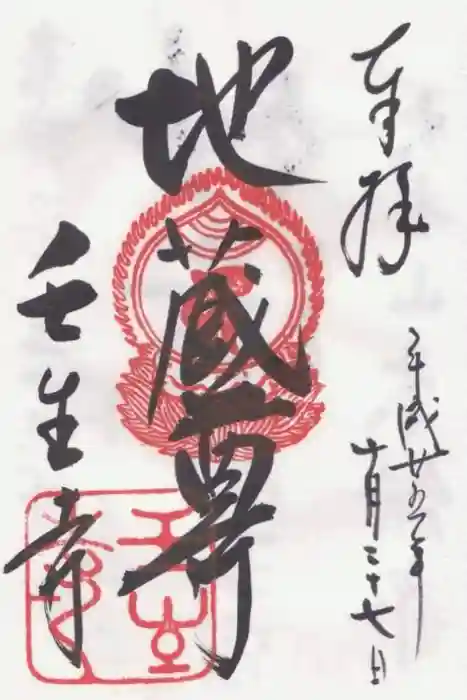 奉拝
平成廿五年
十月二十七日
地蔵尊
壬生寺